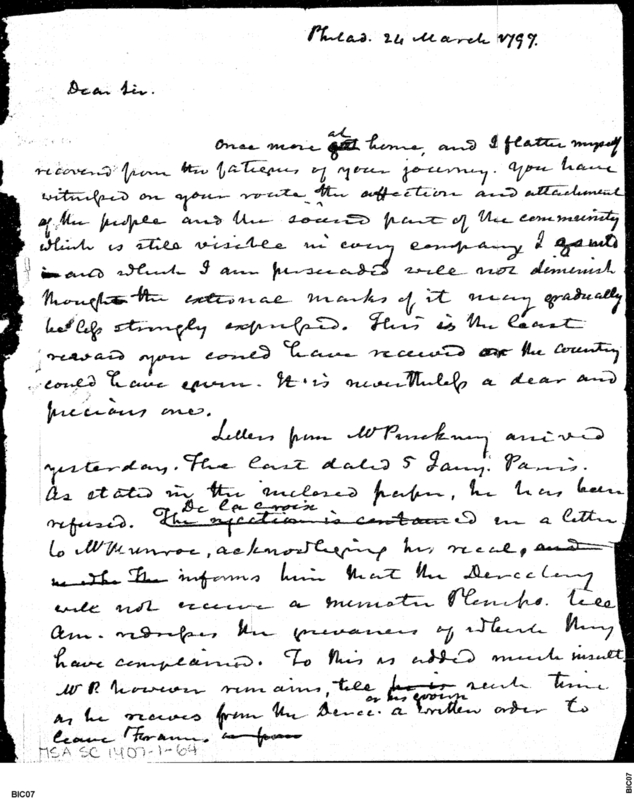 Philad. 24 March 1797.
Dear Sir.
Once more at home, and I flatter myself
recovered from the fatigues of your journey. You have
witnessed on your route the affection and attachment
of the people and the sound part of the community
which is still visible in every company I go into
and which I am persuaded will not diminish
though the external marks of it may gradually
be less strongly expressed. This is the least
reward you could have received or the country
could have given. It is nevertheless a dear and
precious one.
Letters from Mr Pinckney arrived
yesterday. The last dated 5 Jany. Paris.
As stated in the inclosed paper, he has been
refused. De la Croix
The rejection is contained in a letter
to Mr Munroe, acknowledging his recal, and
the informs him that the Directory
will not receive a minister Plenipo. till
Am. redresses the grievances of which they
have complained. To this is added much insult.
Mr P. however remains, till he is such time
or his given
as he receives from the Direc. a written order to
leave France
MSA SC 1407-1-64
BIC07
BIC07